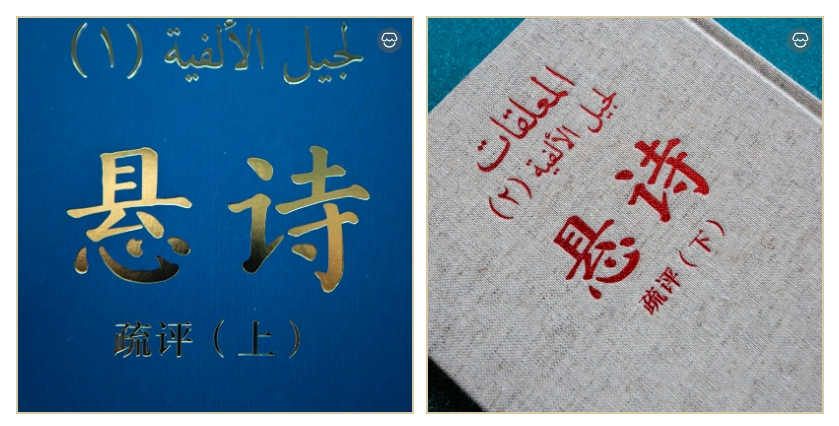 لجيل الألفية (١)
悬诗
疏评（上）
المعلقات
لجيل الألفية (٢)
悬诗
疏评（下）